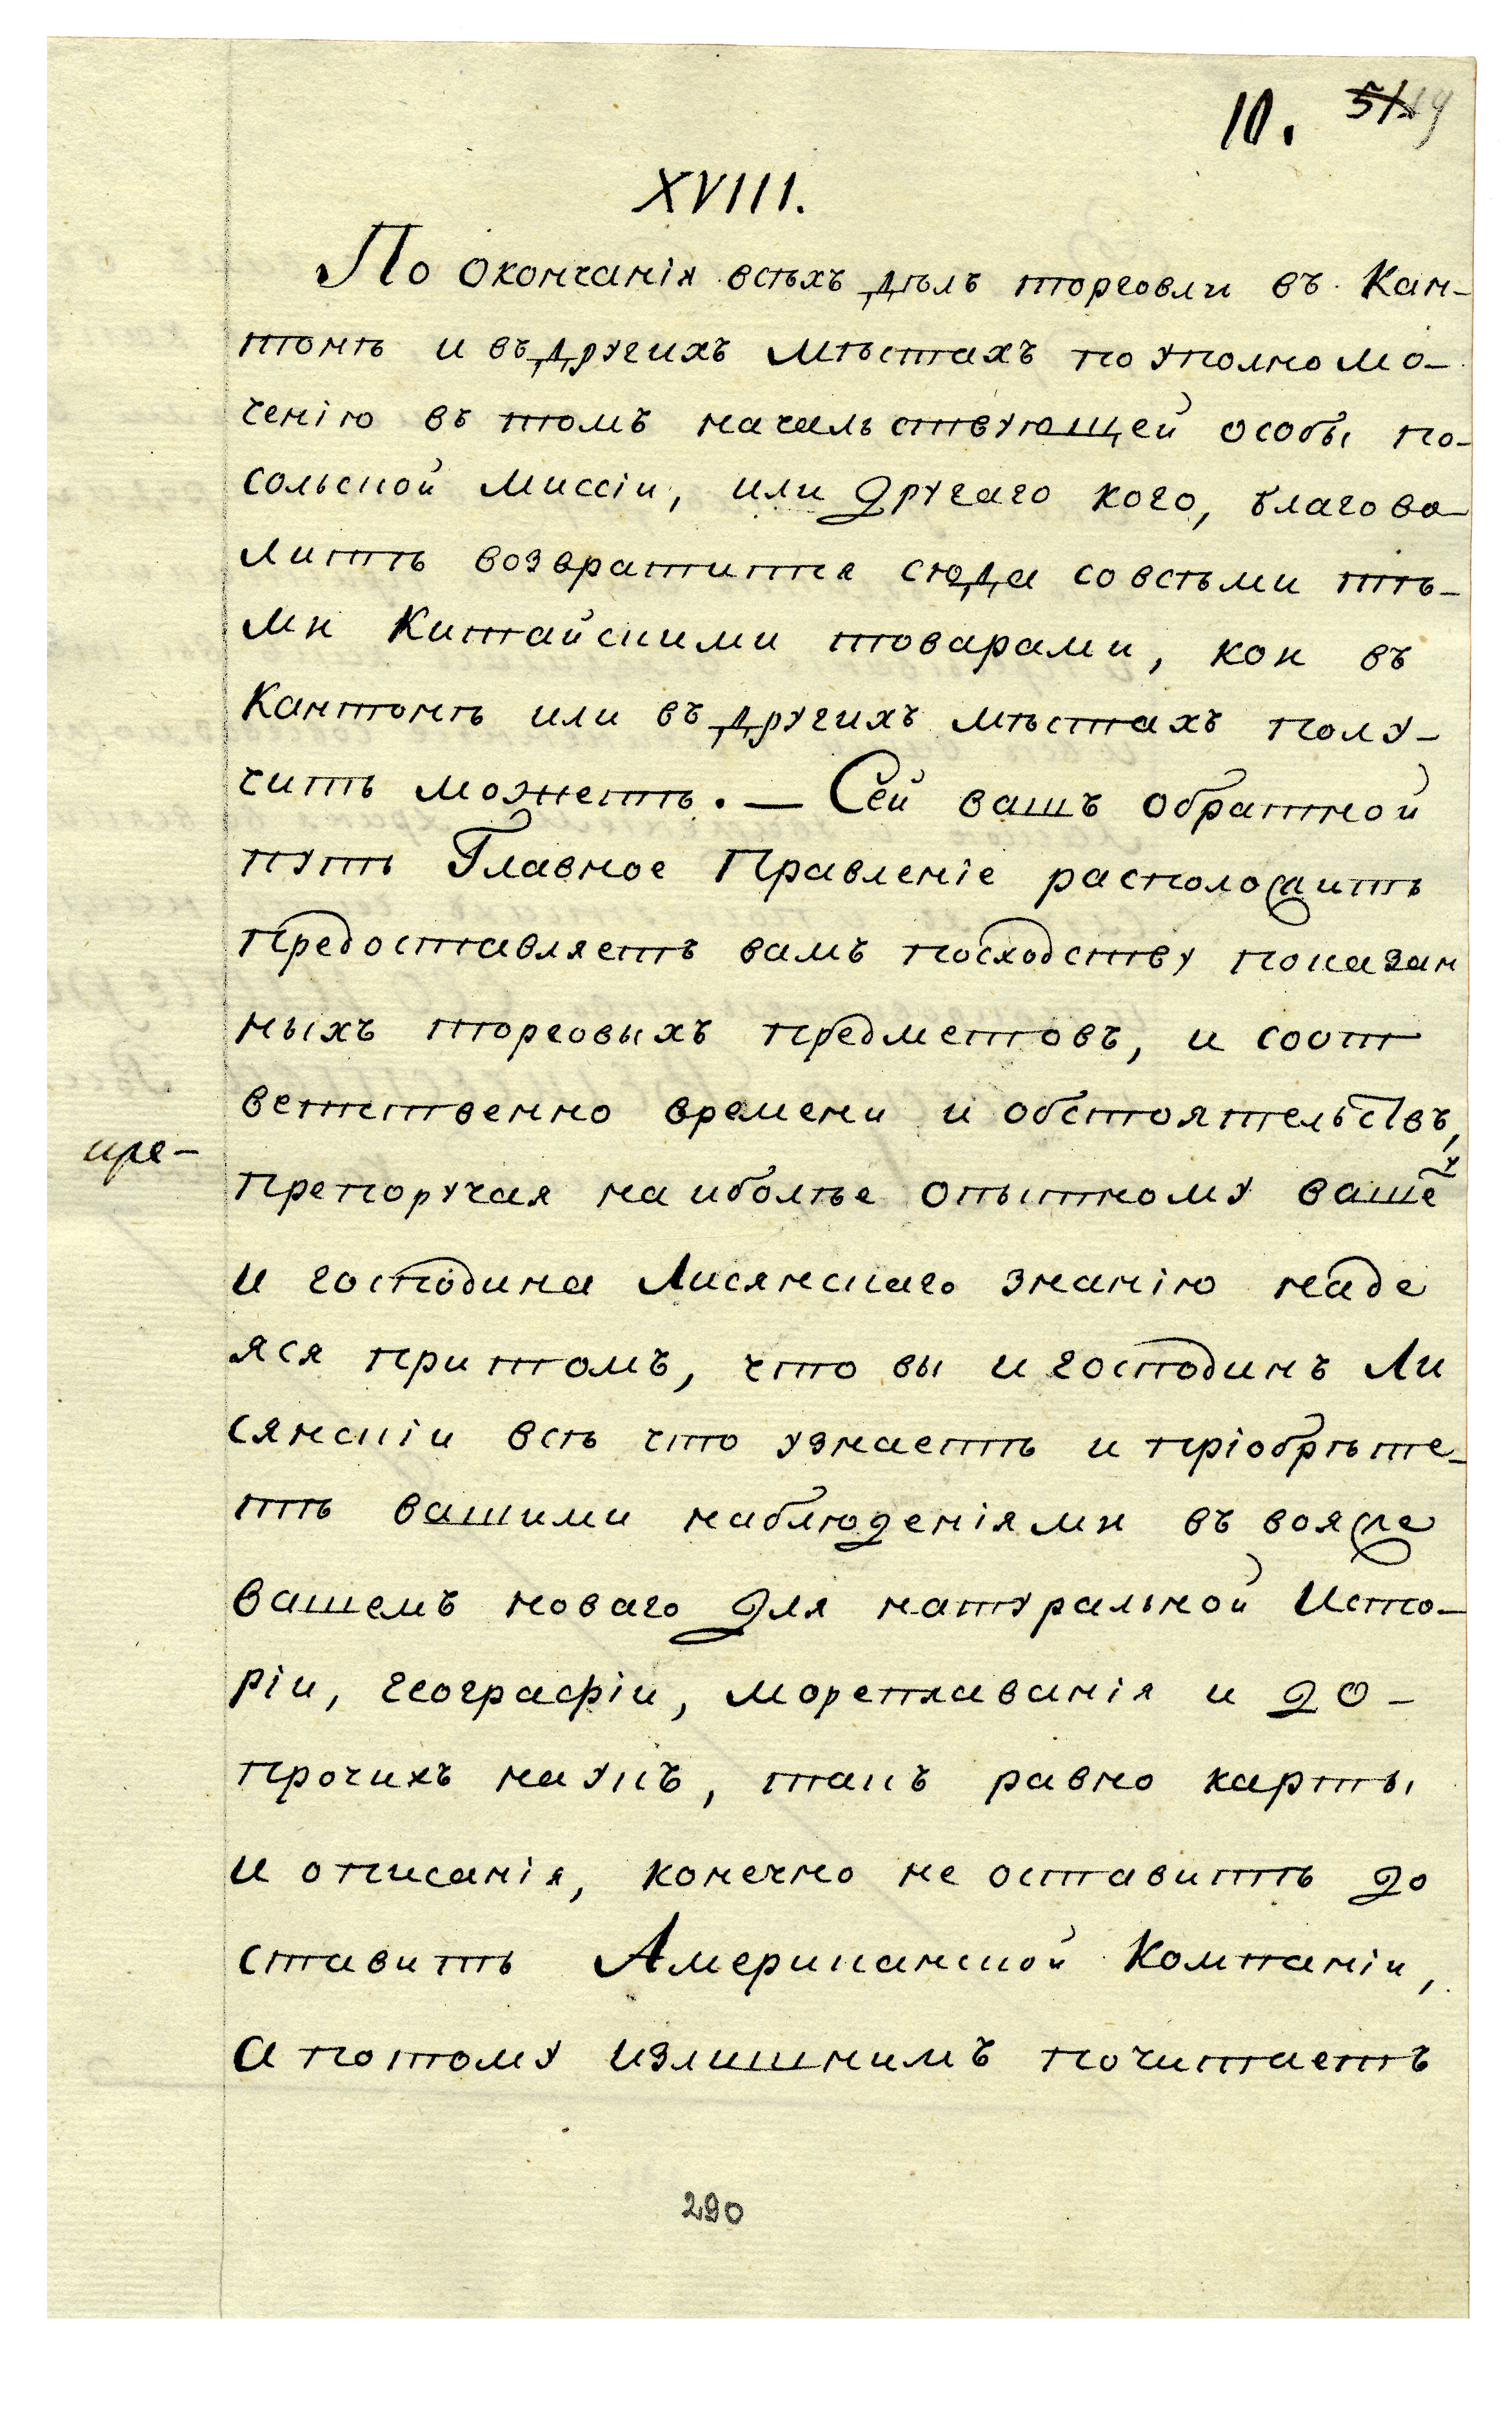 10. 51
XVIII.
По окончанія всѣхъ дѣлъ торговли въ Кан-
тонѣ и въ других мѣстахъ по уполномо-
ченію въ томъ начальствующей особы по-
сольской миссіи, или другаго кого, благово-
лить возвратится сюда со всѣми тѣ-
ми Китайскими товарами, кои въ
Кантонѣ или въ другихъ мѣстахъ полу-
чить можетъ. — Сей вашъ обратной
путь Главное Правленіе расположить
предоставляетъ вамъ по сходству показан
ныхъ торговыхъ предметовъ, и соот
ветственно времени и обстоятельствъ,
пре-
препоручая наиболѣе опытному ваше у
и господина Лисянскаго знанію наде
яся притомъ, что вы и господинъ Ли
сянскіи всѣ что узнаетъ и пріобрѣте-
тѣ вашими наблюденіями въ вояже
вашемъ новаго для натуральной Исто-
ріи, географіи, мореплаванія и до-
прочихъ наукъ, такъ равно карты
и описанія, конечно не оставитѣ до
ставить Американской Компаніи,
а потому излишнимъ почитаетъ
290